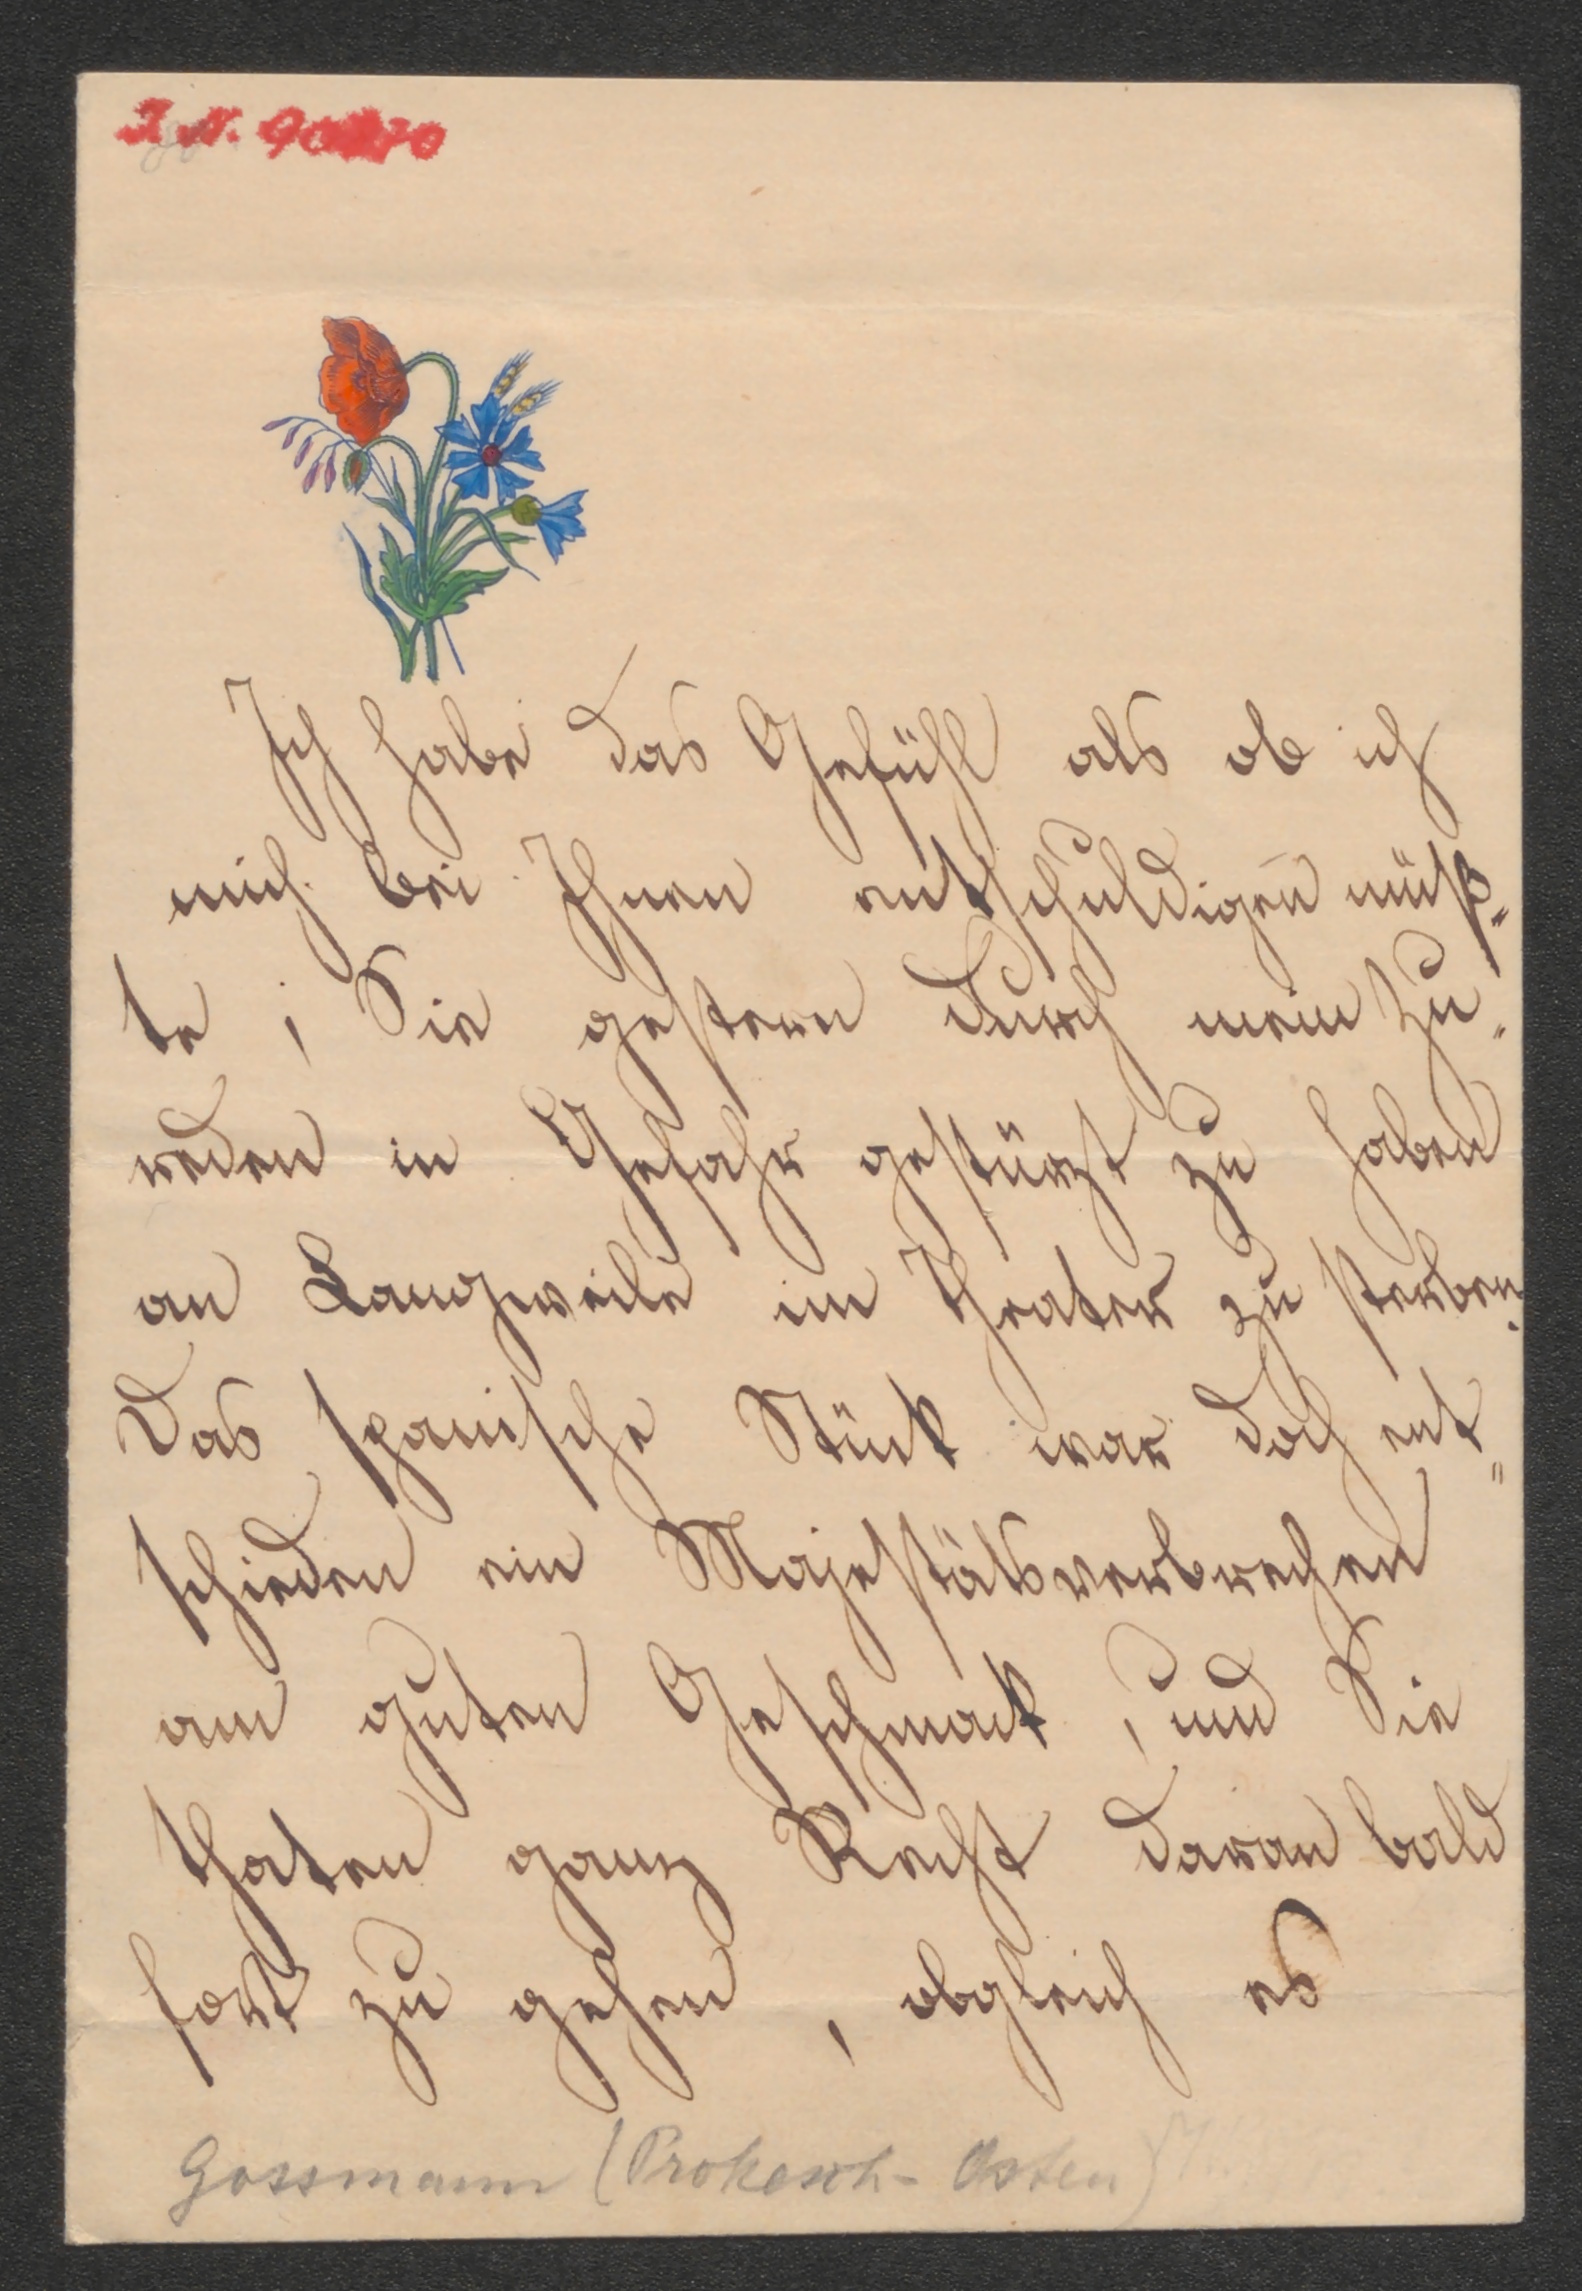 I. N.
Ich habe das Gefühl als ob ich
mich bei Ihnen entschuldigen müß„
te, Sie gestern durch mein Zu„
reden in Gefahr gestürzt zu haben
an Langweile im Theater zu sterben.
Das spanische Stück war doch ent„
schieden ein Majestätsverbrechen
am guten Geschmack, und Sie
thaten ganz Recht daran bald
fort zu gehen, obgleich es
Gossmann (Prokesch-Osten)